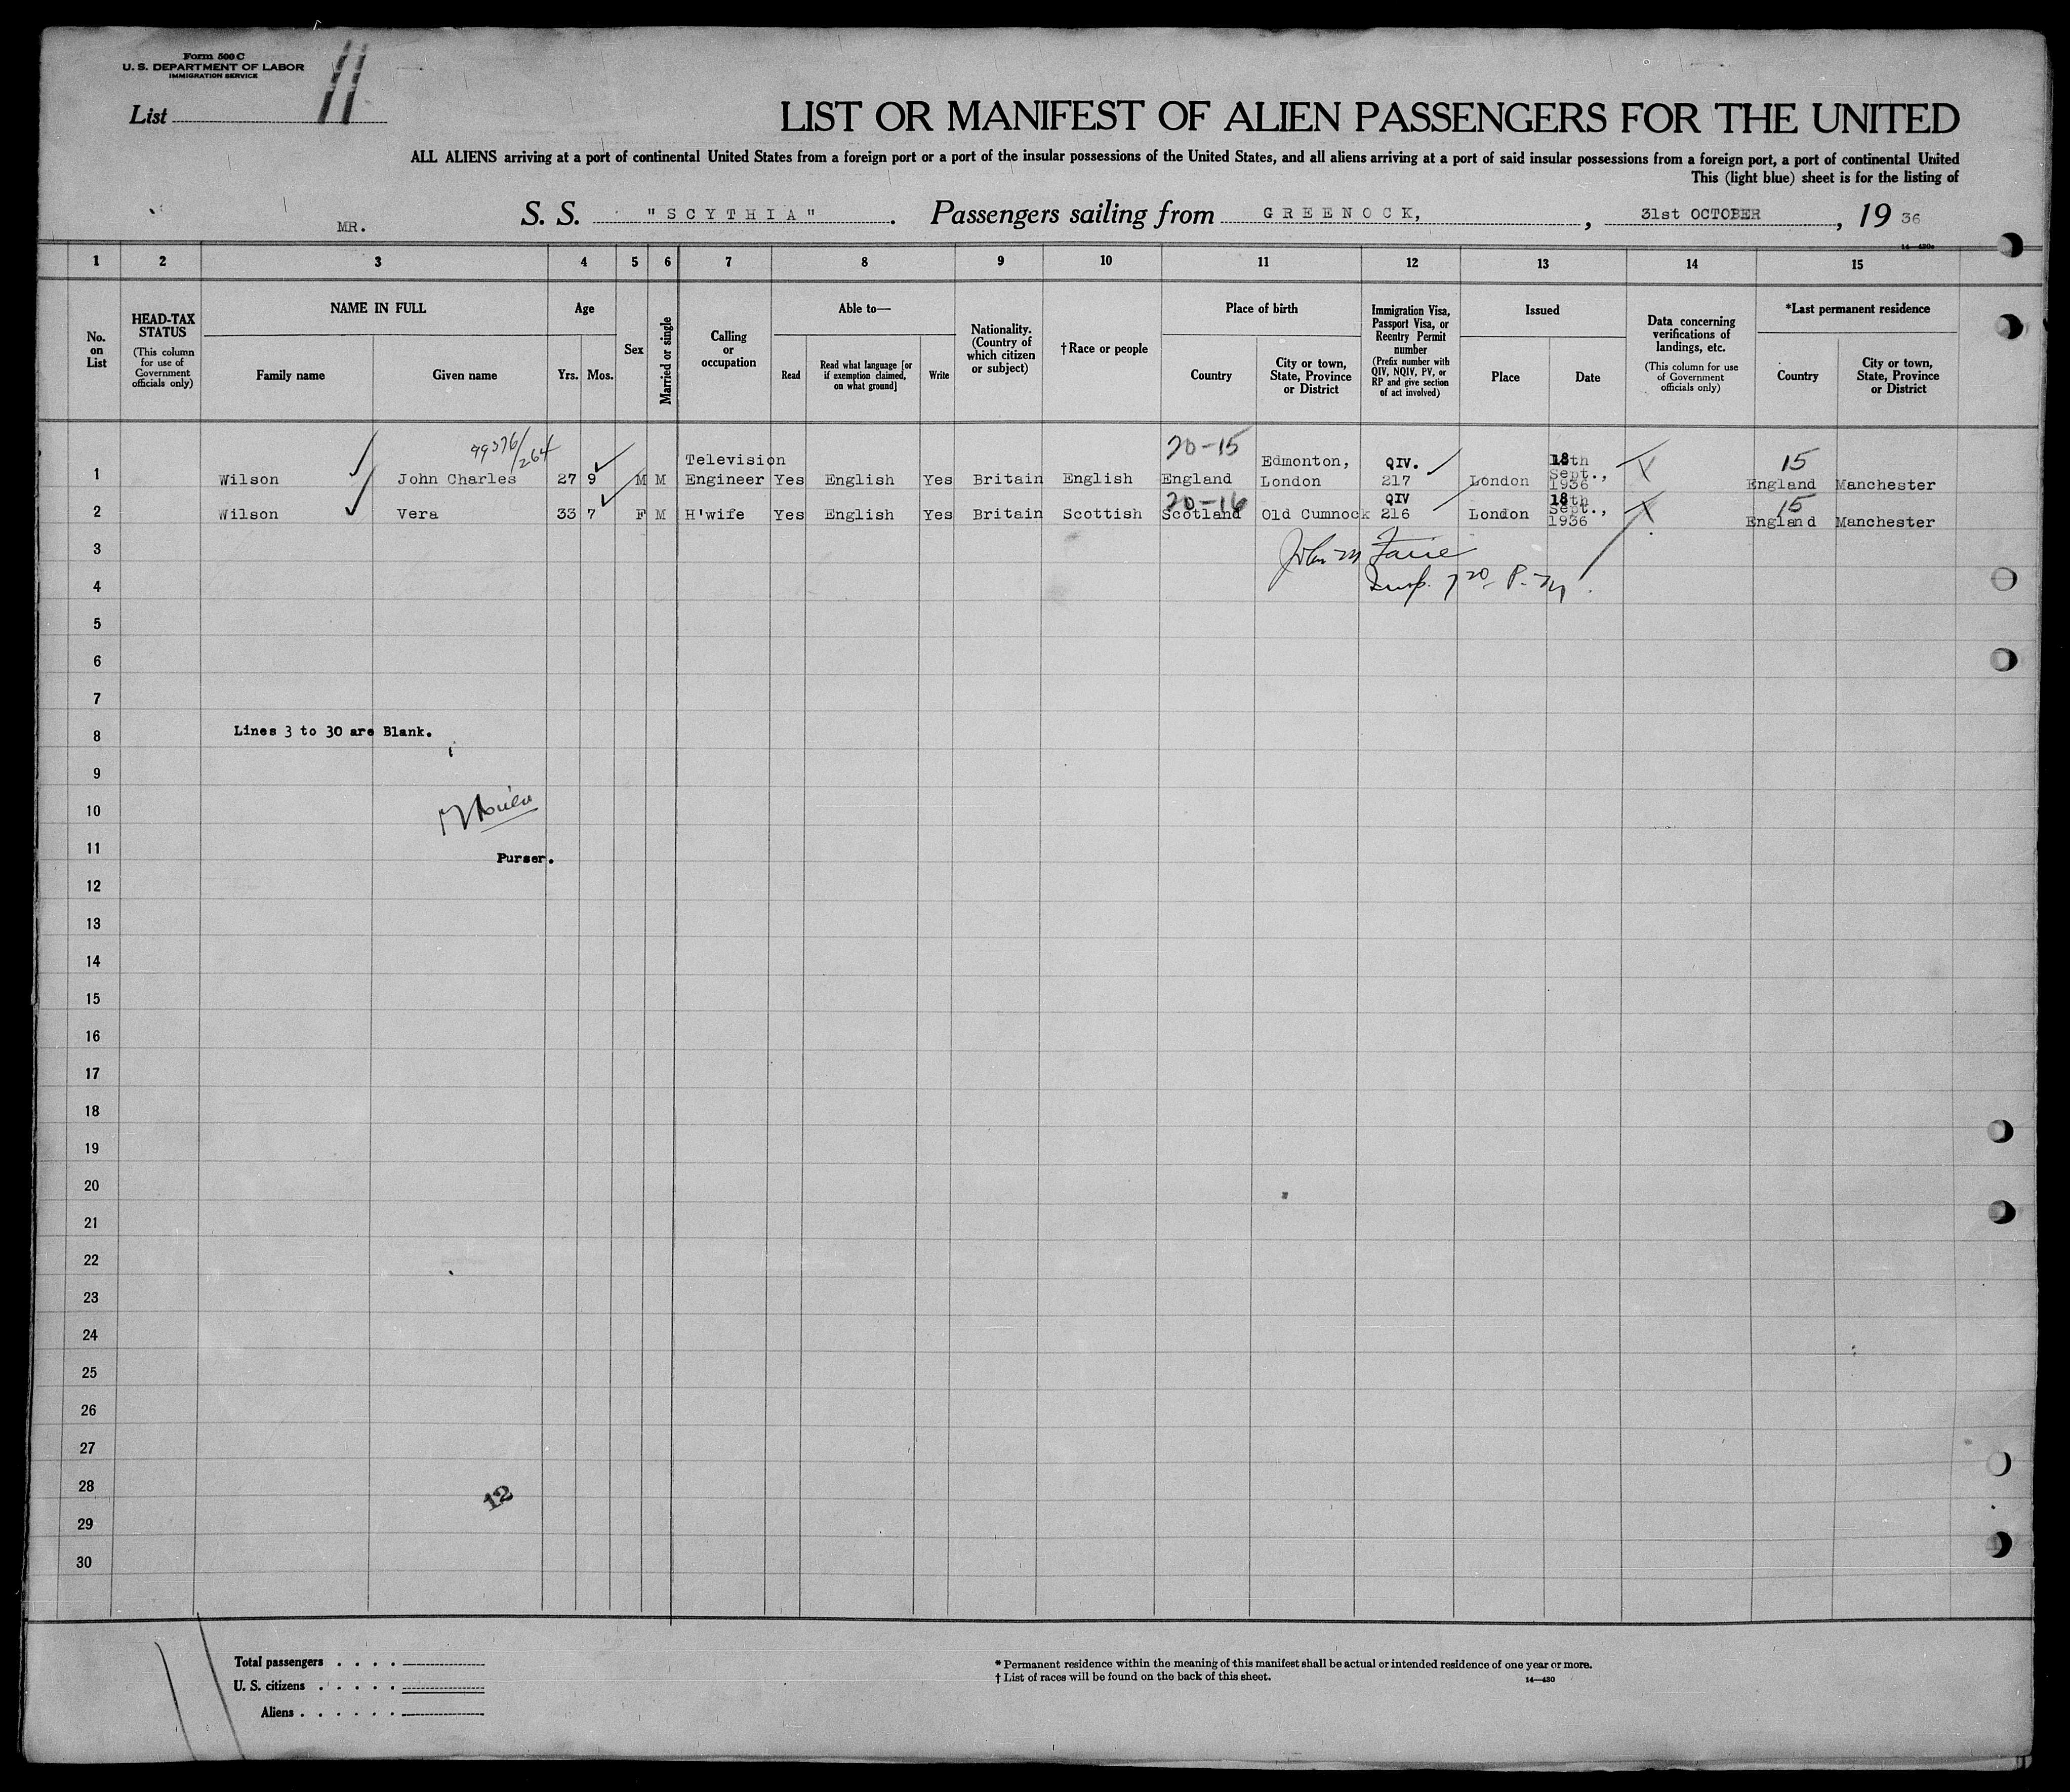 Form 500 C
U. S. DEPARTMENT OF LABOR
IMMIGRATION SERVICE
List 11
LIST OR MANIFEST OF ALIEN PASSENGERS FOR THE UNITED
ALL ALIENS arriving at a port of continental United States from a foreign port or a port of the insular possessions of the United States, and all aliens arriving at a port of said insular possessions from a foreign port, a port of continental United
This (light blue) sheet is for the listing of
MR. S. S. "SCYTHIA". Passengers sailing from GREENOCK, , 31st OCTOBER, 1936
14—430a
1 2 3 4 5 6 7 8 9 10 11 12 13 14 15
No. on List
HEAD-TAX STATUS
(This column for use of Government officials only)
NAME IN FULL
Family name Given name
Age
Yrs. Mos.
Sex
Married or single
Calling or occupation
Able to—
Read
Read what language [or if exemption claimed, on what ground]
Write
Nationality. (Country of which citizen or subject)
†Race or people
Place of birth
Country
City or town, State, Province or District
Immigration Visa, Passport Visa, or Reentry Permit number
(Prefix number with QIV, NQIV, PV, or RP and give section of act involved)
Issued
Place Date
Data concerning verifications of landings, etc.
(This column for use of Government officials only)
*Last permanent residence
Country
City or town, State, Province or District
99376/264
20-15
15
1 Wilson John Charles 27 9 M M Television Engineer Yes English Yes Britain English England Edmonton, London QIV. 217 London 18th Sept., 1936 England Manchester
20-16
15
2 Wilson Vera 33 7 F M H'wife Yes English Yes Britain Scottish Scotland Old Cumnock QIV 216 London 18th Sept., 1936 England Manchester
3
John M
4
Insp. 7 20 P.M.
5
6
7
8 Lines 3 to 30 are Blank.
9
10
11 Purser.
12
13
14
15
16
17
18
19
20
21
22
23
24
25
26
27
28
12
29
30
Total passengers . . . .
U. S. citizens . . . . .
Aliens . . . . . .
* Permanent residence within the meaning of this manifest shall be actual or intended residence of one year or more.
† List of races will be found on the back of this sheet.
14—430